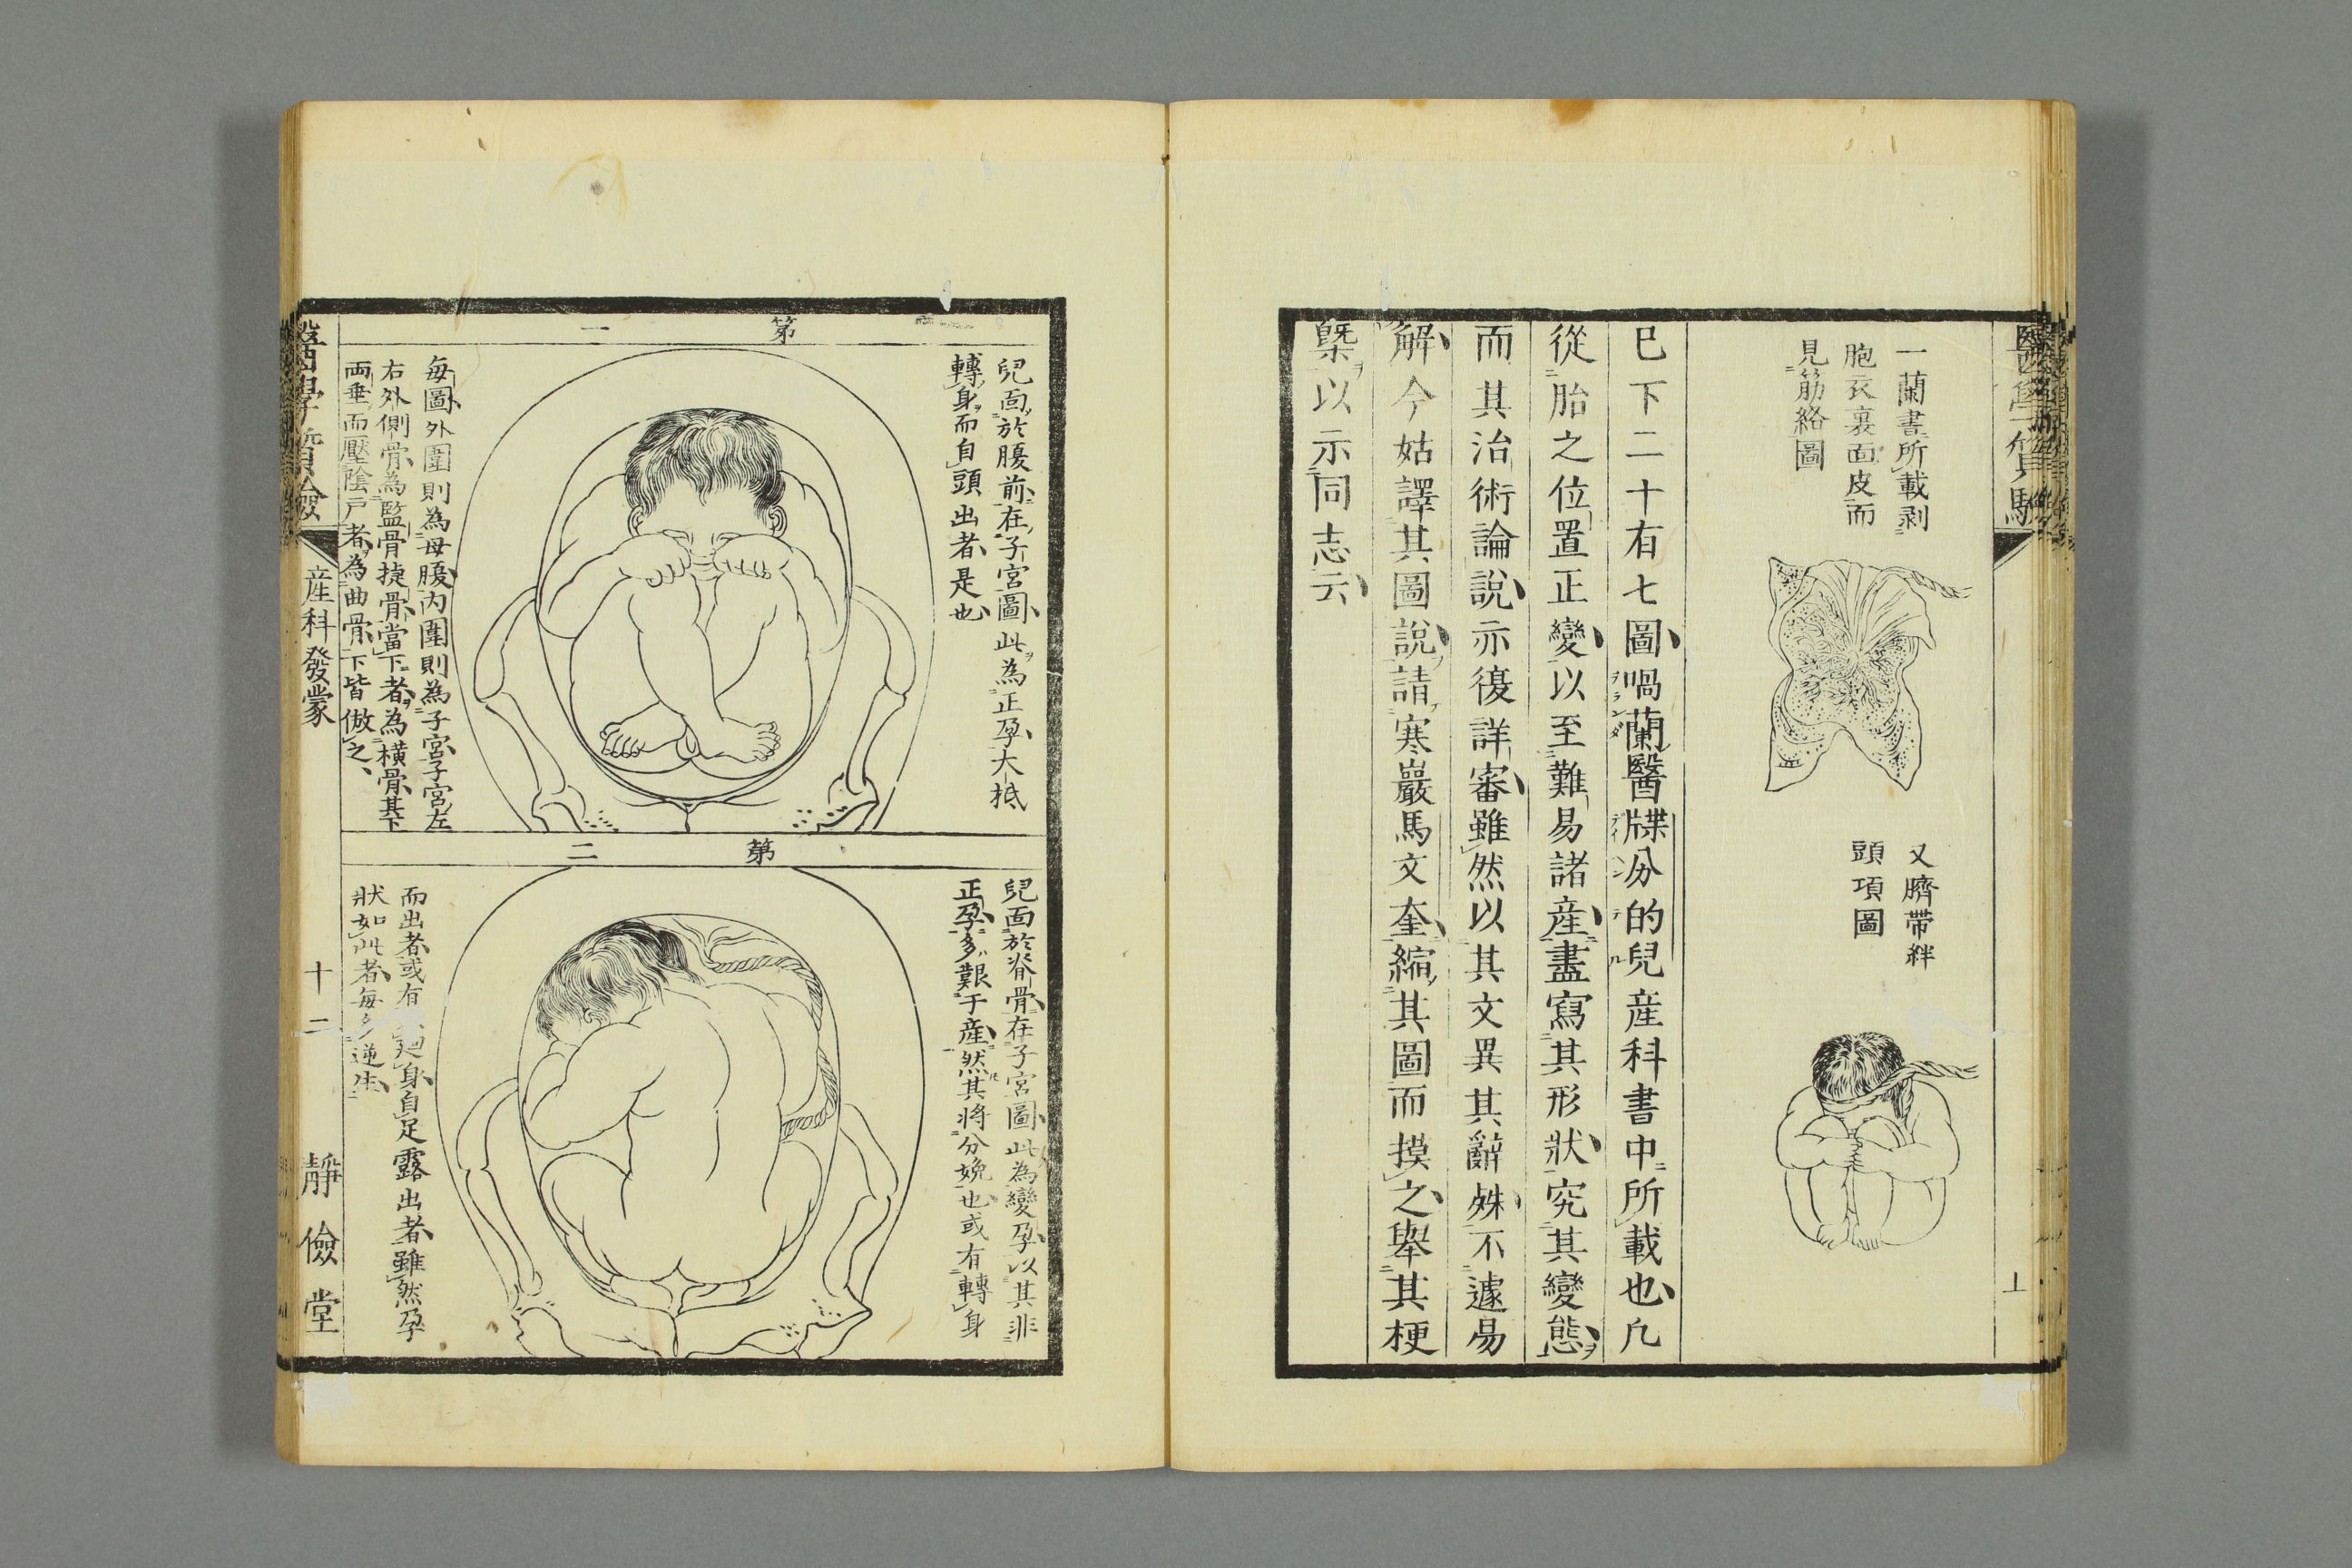 一蘭書所載剥
胞衣裏面皮而
見筋絡圖
又臍帶絆
頭項圖
已下二十有七圖喎蘭醫牒汾的兒産科書中所載也凡
從胎之位置正變以至難易諸産盡寫其形狀究其變態
而其治術論說亦復詳審雖然以其文異其辭殊不遽易
解今姑譯其圖說請寒巖馬文奎縮其圖而摸之舉其梗
槩以示同志云
上
第一
兒面於腹前在子宮圖此為正孕大抵
轉身而自頭出者是也
每圖外圍則為母腹内圍則為子宮子宮左
右外側骨為監骨揵骨當下者為橫骨其下
兩垂而壓陰戶者為曲骨下皆倣之
第二
兒面於脊骨在子宮圖此為變孕以其非
正孕多艱于産然其將分娩也或有轉身
而出者或有 身自足露出者雖然孕
狀如此者每多逆生
醫學質驗
産科發蒙
十二
靜儉堂